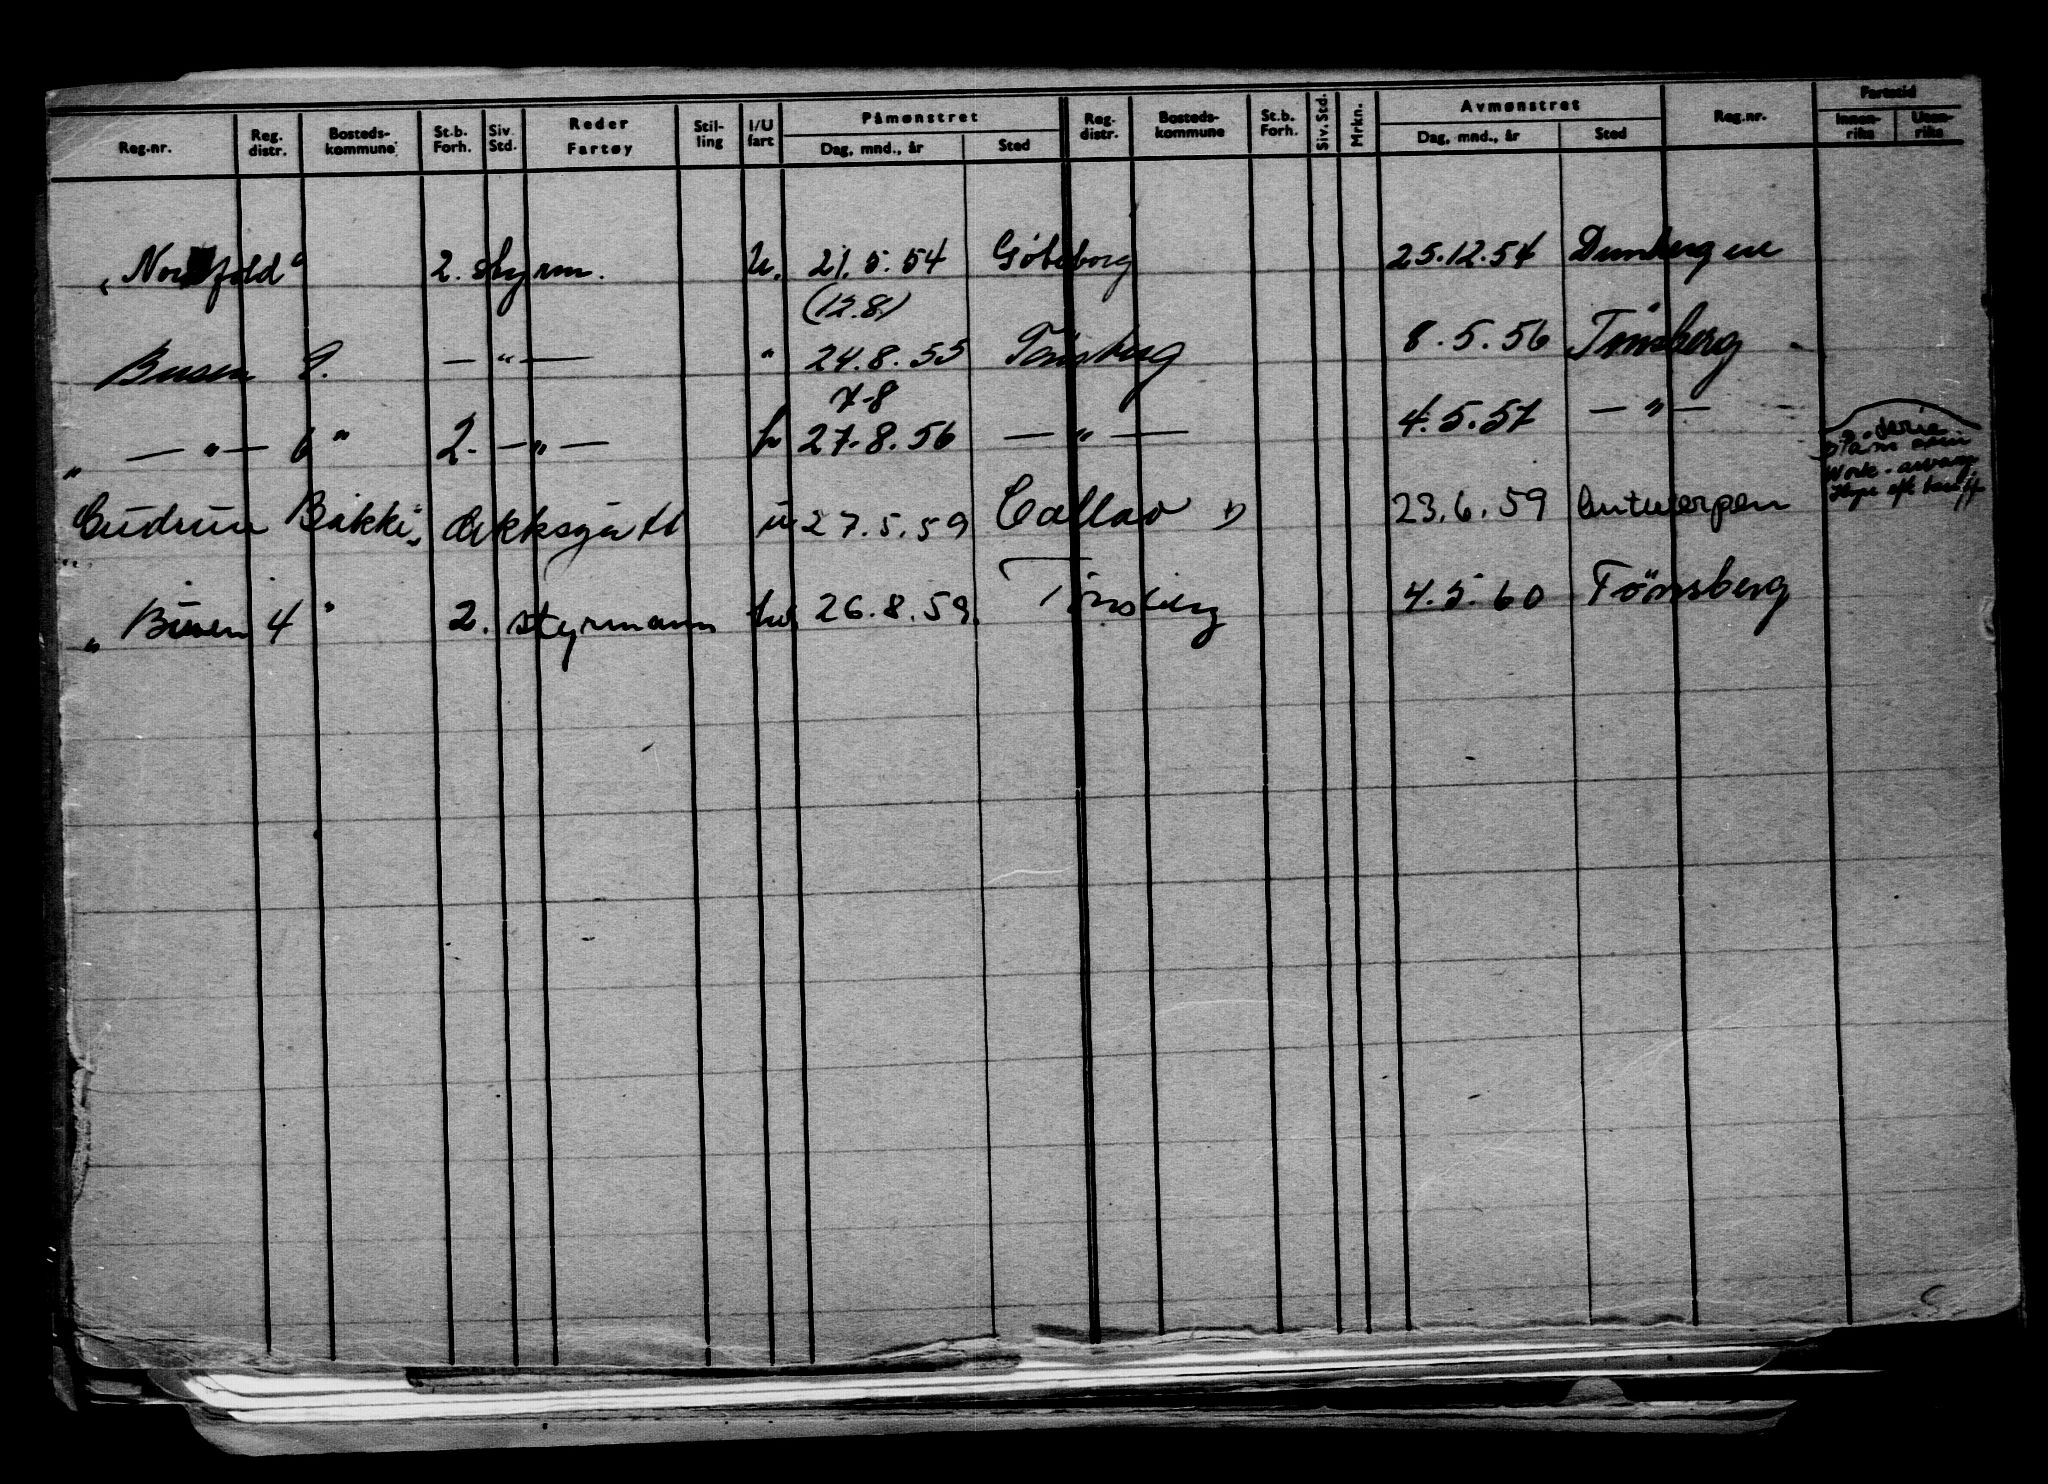 Reg.nr. Reg. distr. Bosteds- kommune St.b. Forh. Siv. Std. Reder Fartøy Stil- ling I/U fart Påmønstret Dag, mnd., år Sted Reg. distr. Bosteds- kommune St.b. Forh. Siv. Std. Mrkn. Avmønstret Dag, mnd., år Sted Reg.nr. Fartstid Innen- riks Uten- riks
2. styrm. U. 21.5.54 Göteborg 25.12.54
(12.8)
Busen 8. — " — " 24.8.55 Tönsberg 8.5.56 Tönsberg
7-8
" — " — 6 " 2. — " — h 27.8.56 — " — 4.5.57 — " —
"Gudrun Bakke" dekksgutt u 27.5.59 Callao 1) 23.6.59 Antwerpen
"Busen 4" 2. styrmann hv 26.8.59. Tönsberg 4.5.60 Tönsberg